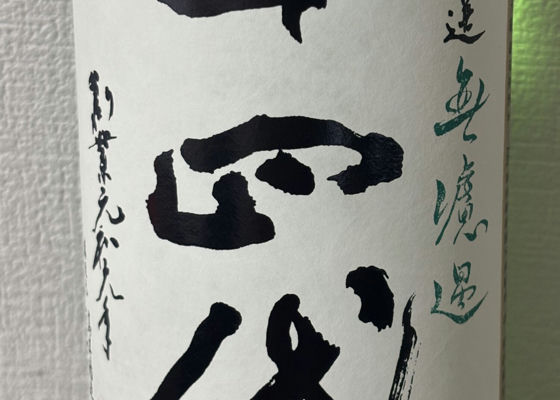 無濾過
十四代
創業元和元年